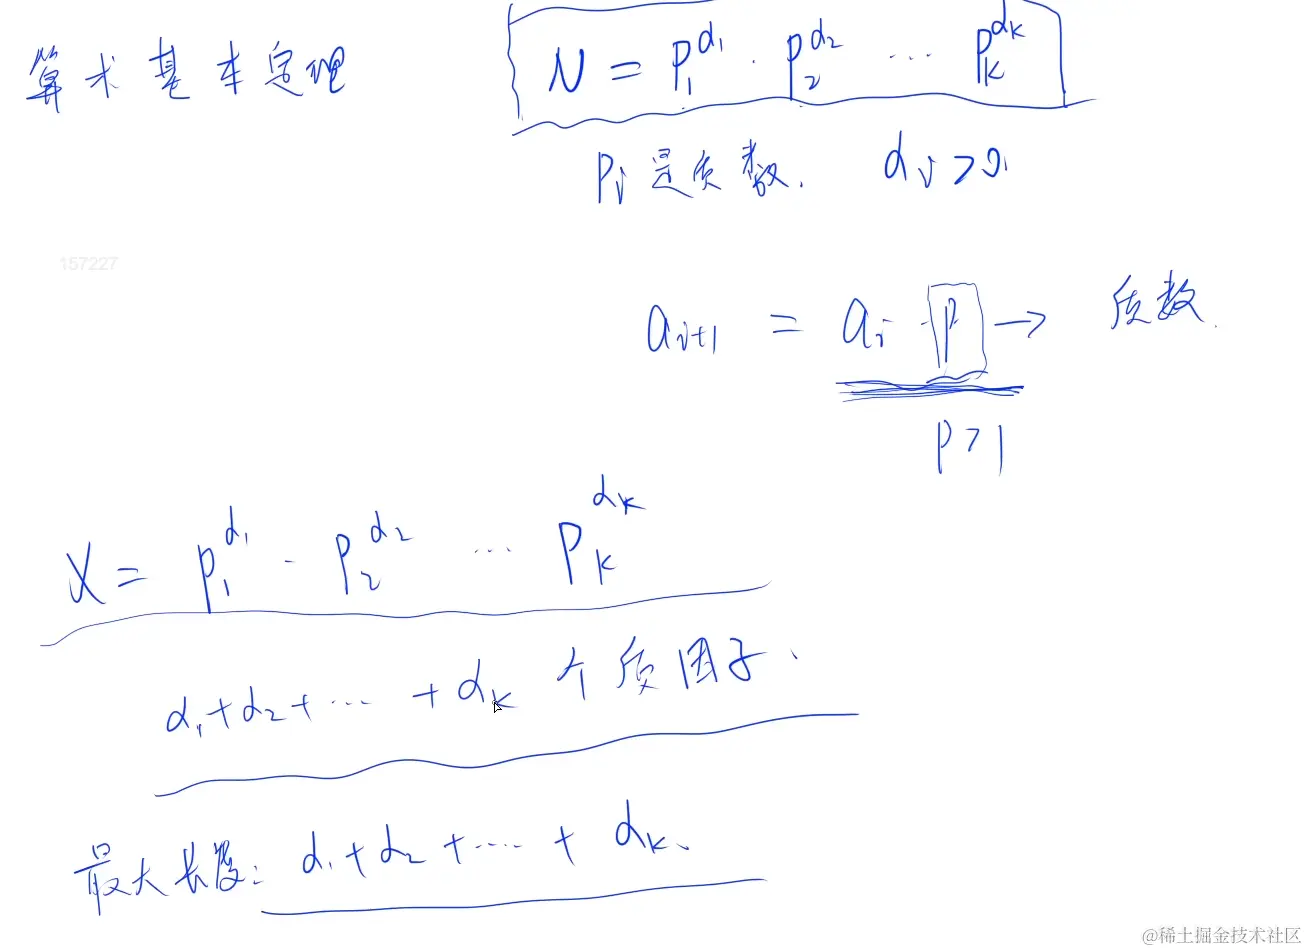 算术基本定理
N = P₁^α₁ · P₂^α₂ ... P_k^α_k
P_j 是质数. α_j > 0.
157227
a_{i+1} = a_i · P → 质数.
P > 1
X = P₁^α₁ · P₂^α₂ ... P_k^α_k
α₁+α₂+... +α_k 个质因子.
最大长度: α₁+α₂+.... + α_k.
@稀土掘金技术社区